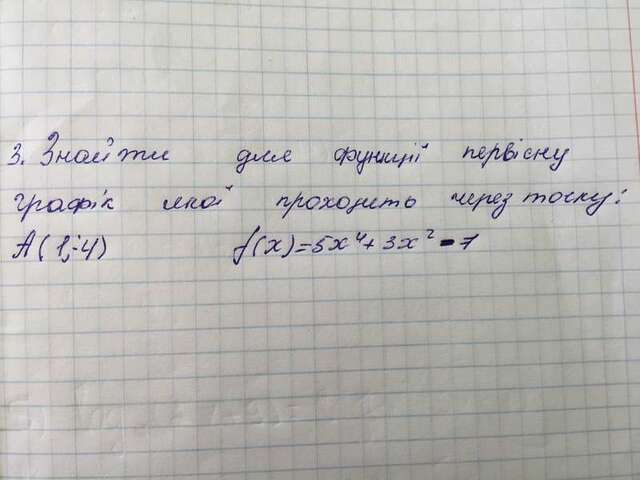 3. Знайти для функції первісну
графік якої проходить через точку:
А(1;-4) f(x)=5x⁴+3x²-7